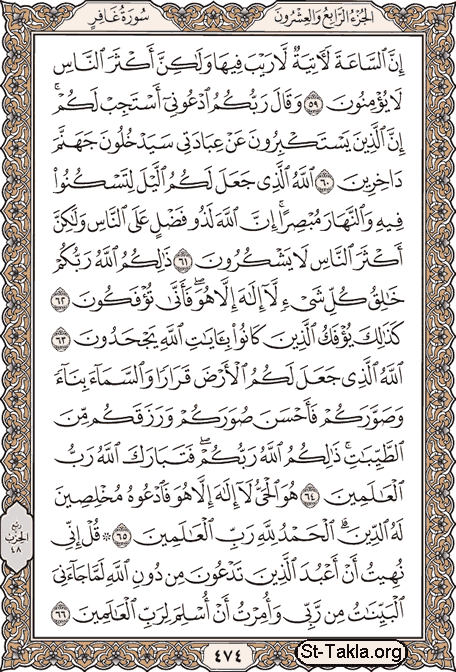 الجزء الرابع والعشرون
سورة غافر
إِنَّ ٱلسَّاعَةَ لَـَٔاتِيَةٌ لَّا رَيْبَ فِيهَا وَلَـٰكِنَّ أَكْثَرَ ٱلنَّاسِ
لَا يُؤْمِنُونَ ٥٩ وَقَالَ رَبُّكُمُ ٱدْعُونِىٓ أَسْتَجِبْ لَكُمْ ۚ
إِنَّ ٱلَّذِينَ يَسْتَكْبِرُونَ عَنْ عِبَادَتِى سَيَدْخُلُونَ جَهَنَّمَ
دَاخِرِينَ ٦٠ ٱللَّهُ ٱلَّذِى جَعَلَ لَكُمُ ٱلَّيْلَ لِتَسْكُنُوا۟
فِيهِ وَٱلنَّهَارَ مُبْصِرًا ۚ إِنَّ ٱللَّهَ لَذُو فَضْلٍ عَلَى ٱلنَّاسِ وَلَـٰكِنَّ
أَكْثَرَ ٱلنَّاسِ لَا يَشْكُرُونَ ٦١ ذَٰلِكُمُ ٱللَّهُ رَبُّكُمْ
خَـٰلِقُ كُلِّ شَىْءٍ لَّآ إِلَـٰهَ إِلَّا هُوَ ۖ فَأَنَّىٰ تُؤْفَكُونَ ٦٢
كَذَٰلِكَ يُؤْفَكُ ٱلَّذِينَ كَانُوا۟ بِـَٔايَـٰتِ ٱللَّهِ يَجْحَدُونَ ٦٣
ٱللَّهُ ٱلَّذِى جَعَلَ لَكُمُ ٱلْأَرْضَ قَرَارًا وَٱلسَّمَآءَ بِنَآءً
وَصَوَّرَكُمْ فَأَحْسَنَ صُوَرَكُمْ وَرَزَقَكُم مِّنَ
ٱلطَّيِّبَـٰتِ ۚ ذَٰلِكُمُ ٱللَّهُ رَبُّكُمْ ۖ فَتَبَارَكَ ٱللَّهُ رَبُّ
ٱلْعَـٰلَمِينَ ٦٤ هُوَ ٱلْحَىُّ لَآ إِلَـٰهَ إِلَّا هُوَ فَٱدْعُوهُ مُخْلِصِينَ
لَهُ ٱلدِّينَ ۗ ٱلْحَمْدُ لِلَّهِ رَبِّ ٱلْعَـٰلَمِينَ ٦٥ ۞ قُلْ إِنِّى
نُهِيتُ أَنْ أَعْبُدَ ٱلَّذِينَ تَدْعُونَ مِن دُونِ ٱللَّهِ لَمَّا جَآءَنِىَ
ٱلْبَيِّنَـٰتُ مِن رَّبِّى وَأُمِرْتُ أَنْ أُسْلِمَ لِرَبِّ ٱلْعَـٰلَمِينَ ٦٦
ربع
الحزب
٤٨
٤٧٤
St-Takla.org